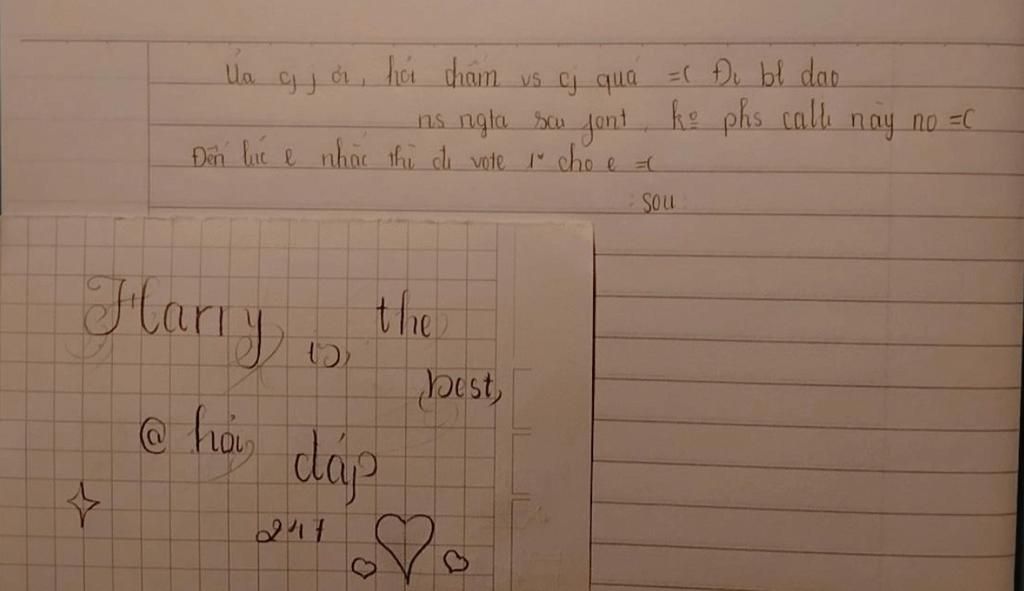 Ủa cj j ơi, hỏi chấm vs cj quá =( Đi bl dạo
ns ngta sau font, kº phs calli này nọ =(
Đến lúc e nhắc thì đi vote 1* cho e =(
: sou
Harry is the
best,
@ hỏi đáp
247